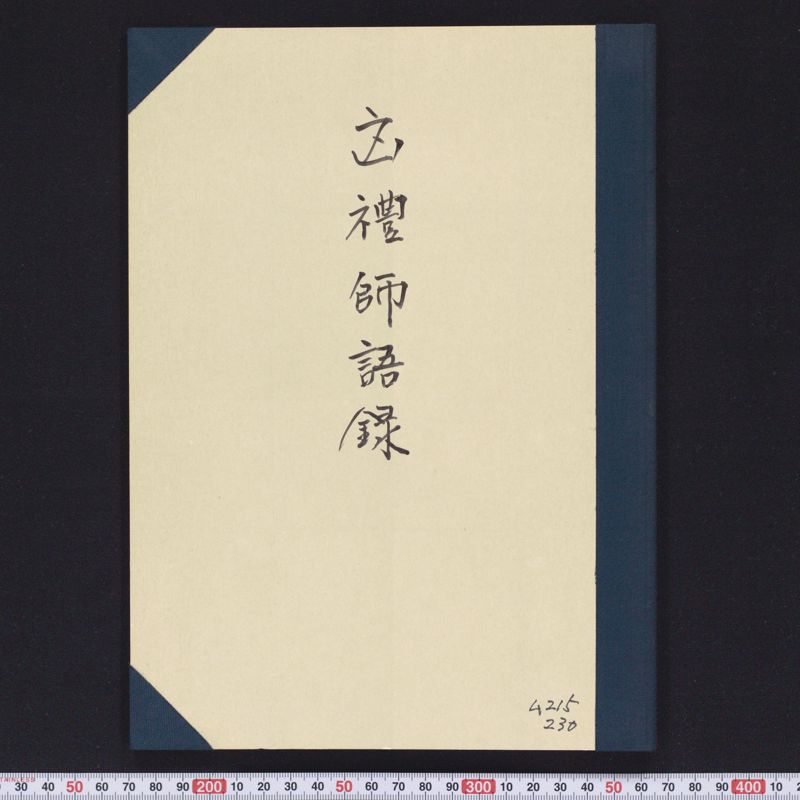 㐫禮師語録
4215
230
30 40 50 60 70 80 90 200 10 20 30 40 50 60 70 80 90 300 10 20 30 40 50 60 70 80 90 400 10